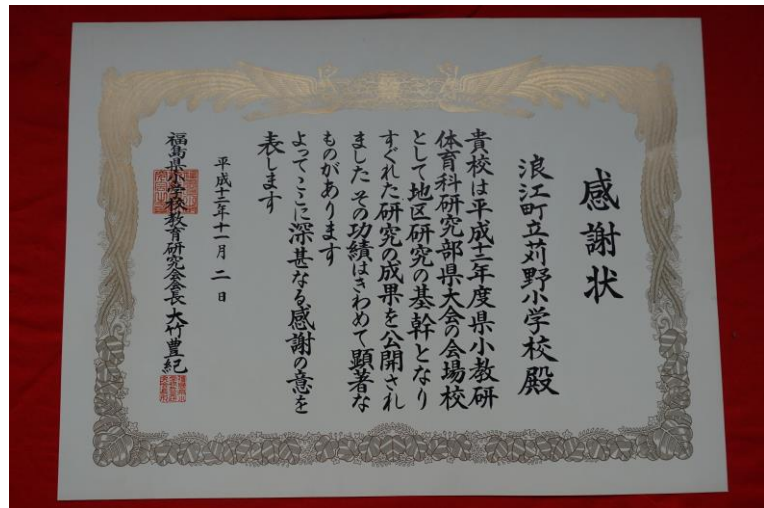 感謝状
浪江町立苅野小学校殿
貴校は平成十二年度県小教研
体育科研究部県大会の会場校
として地区研究の基幹となり
すぐれた研究の成果を公開され
ました その功績はきわめて顕著な
ものがあります
よってここに深甚なる感謝の意を
表します
平成十二年十一月 二 日
福島県小学校教育研究会会長 大竹豊紀